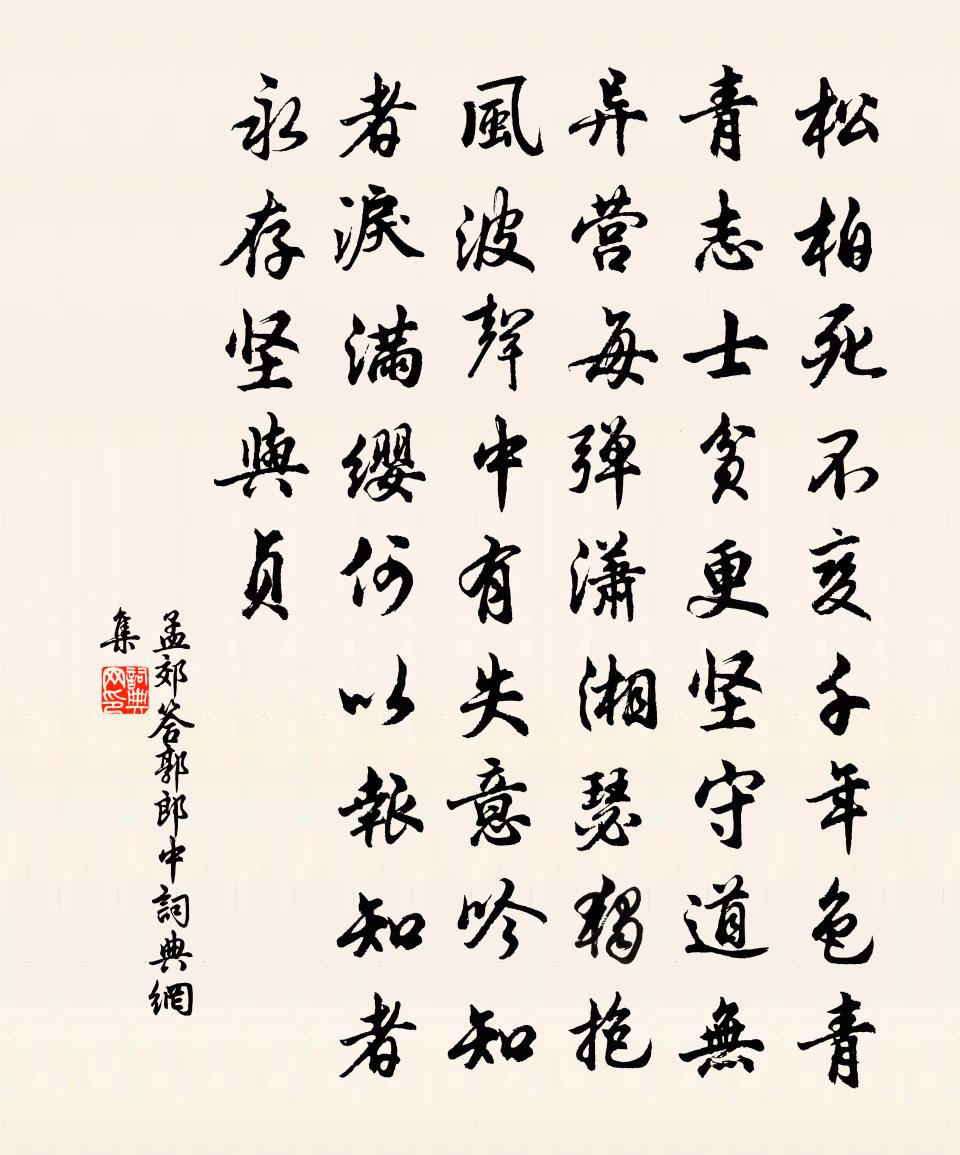 松柏死不变千年色青
青志士贫更坚守道無
异营每弹潇湘瑟獨抱
風波聲中有失意吟知
者淚满缨何以報知者
永存坚與贞
孟郊答郭郎中詞典網
集
詞典网印